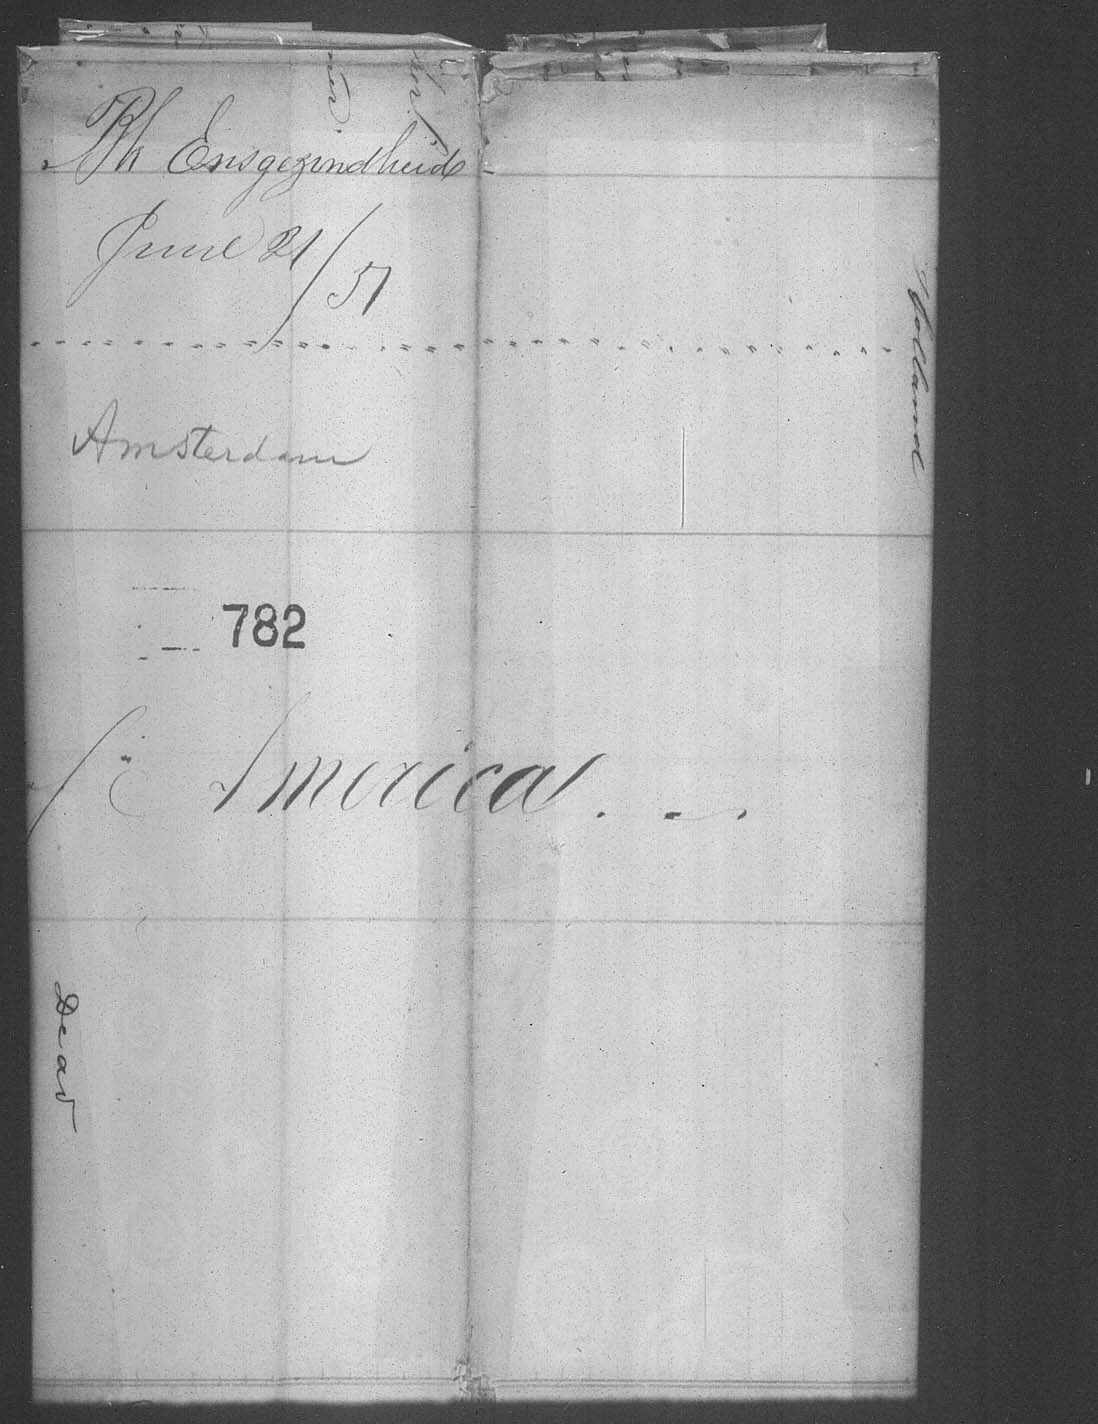 Bk Ensgezindheid
June 21/51
Amsterdam
782
America.
Holland